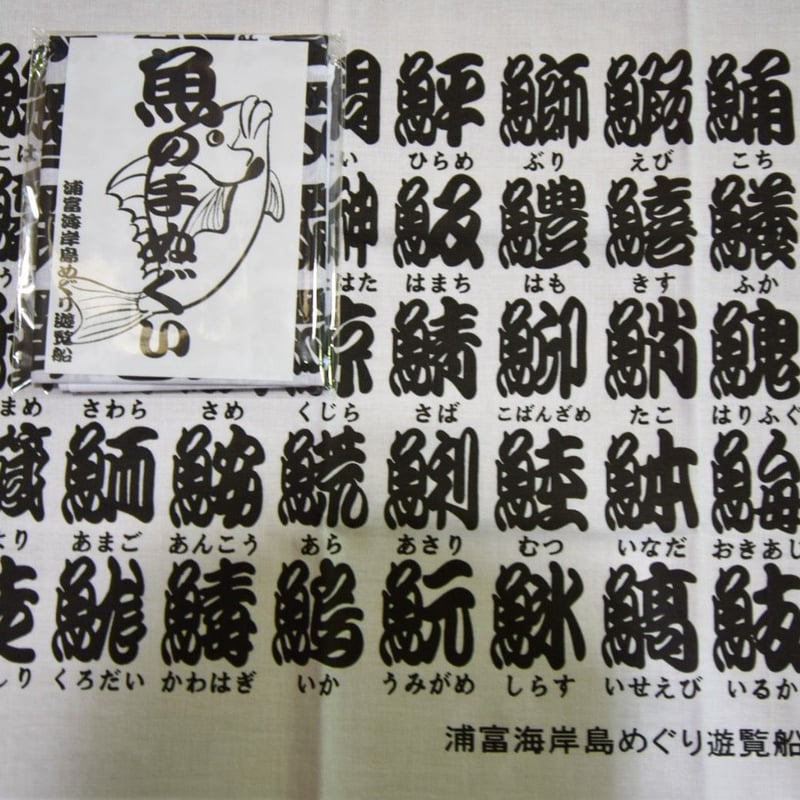 魚の手ぬぐい
浦富海岸島めぐり遊覧船
鮃 鰤 鰕 鯒
ひらめ ぶり えび こち
鰰 魬 鱧 鱚 鱶
はた はまち はも きす ふか
鯨 鯖 鮣 鮹
まめ さわら さめ くじら さば こばんざめ たこ はりふぐ
鮞 鮟 𩺊 鯏 鯥 鯩
より あまご あんこう あら あさり むつ いなだ おきあじ
鰞 魭 鰝 鮁
しり くろだい かわはぎ いか うみがめ しらす いせえび いるか
浦富海岸島めぐり遊覧船